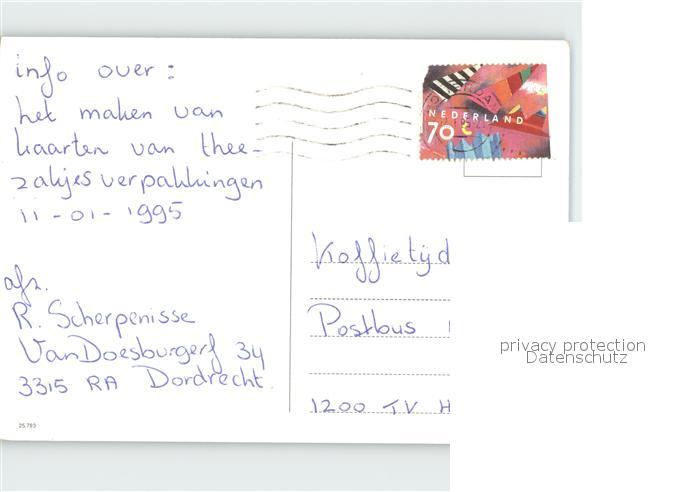 info over:
het maken van
kaarten van thee-
zakjesverpakkingen
11-01-1995
afz.
R. Scherpenisse
Van Doesburgerf 34
3315 RA Dordrecht
25.793
NEDERLAND
70
Koffietijd
Postbus
1200 TV H
privacy protection
Datenschutz